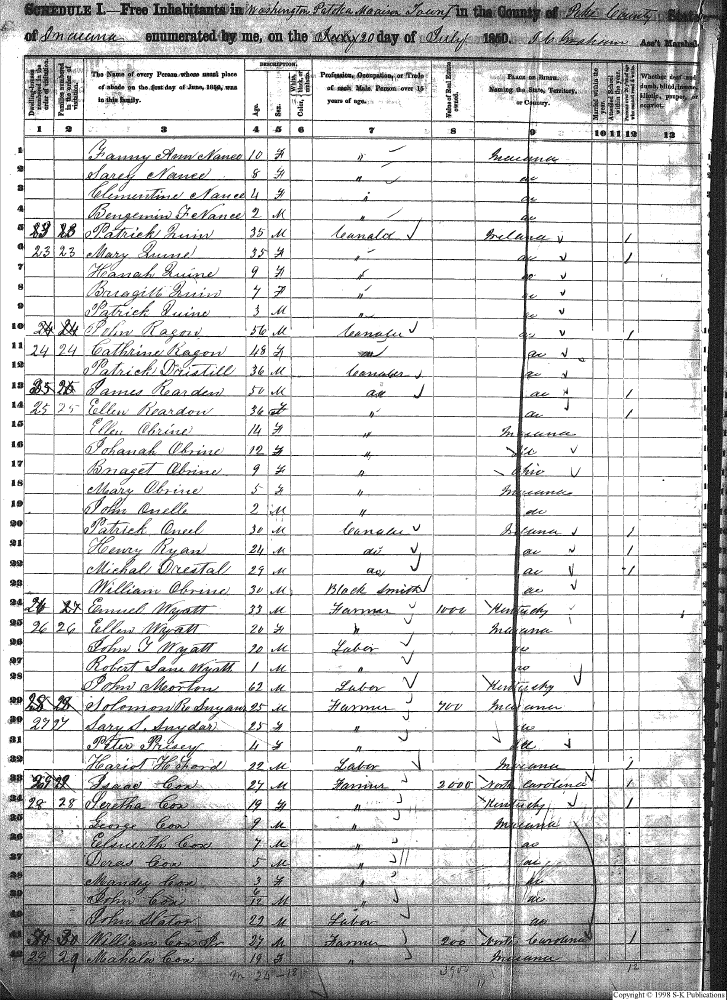 SCHEDULE I.—Free Inhabitants in Washington Patoka Madison Town in the County of Pike County State
of Indiana enumerated by me, on the 20 day of July 1850. Ass't Marshal.
DESCRIPTION.
Dwelling-houses numbered in the order of visitation.
Families numbered in the order of visitation.
The Name of every Person whose usual place of abode on the first day of June, 1850, was in this family.
Age.
Sex.
Color,
Profession, Occupation, or Trade of each Male Person over 15 years of age.
Value of Real Estate owned.
PLACE OF BIRTH. Naming the State, Territory, or Country.
Married within the year.
Attended School within the year.
Whether deaf and dumb, blind, insane, idiotic, pauper, or convict.
1 2 3 4 5 6 7 8 9 10 11 12 13
1 Fanny Ann Nance 10 F " Indiana
2 Sarey Nance 8 F " do
3 Clementine Nance 4 F " do
4 Bengemin F Nance 2 M " do
5 23 23 Patrick Quin 35 M Ireland 1
6 23 23 Mary Quine 35 F " do 1
7 Hanah Quine 9 F " do
8 Quin 7 F " do
9 Patrick Quine 3 M " do
10 24 24 John Ragon 56 M do 1
11 24 24 Cathrine Ragon 48 F do
12 Patrick 36 M do
13 James Rearden 50 M do do 1
14 25 25 Ellen Reardon 36 F " do 1
15 Ellen Obrine 14 F " Indiana
16 Johanah Obrine 12 F " do
17 Obrine 9 F " Ohio
18 Mary Obrine 5 F " Indiana
19 John Onelle 2 M " do
20 Patrick Oneil 30 M Ireland 1
21 Henry Ryan 24 M do do 1
22 Michal 29 M do do 1
23 William Obrine 30 M Black Smith do
24 Wyatt 33 M Farmer 1000 Kentucky
25 26 26 Ellen Wyatt 20 F " Indiana
26 John T Wyatt 20 M Labor do
27 Robert Wyatt 1 M " do
28 John Morton 62 M Labor Kentucky
29 28 28 Solomon 25 M Farmer 700 Indiana
30 27 27 Sary S. Snydar 25 F " do
31 Peter 4 F "
32 Hariot H Ford 22 M Labor Indiana 1
33 29 29 Isaac Cox 27 M Farmer 2000 North Carolina 1
34 28 28 Cox 19 F " Kentucky 1
35 George Cox 9 M " Indiana
36 Cox 7 M " do
37 Cox 5 M " do
38 Mandey Cox 3 F " do
39 John Cox 6/12 M " do
40 John Slator 22 M Labor do
41 30 30 William Cox Jr 27 M Farmer 200 North Carolina 1
42 29 29 Mahala Cox 19 F " Indiana
12
Copyright © 1998 S-K Publications